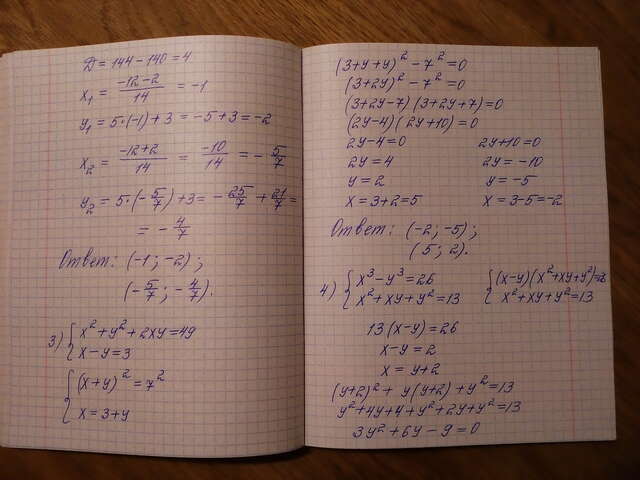 D = 144 - 140 = 4
x₁ = (-12-2)/14 = -1
y₁ = 5·(-1)+3 = -5+3 = -2
x₂ = (-12+2)/14 = -10/14 = -5/7
y₂ = 5·(-5/7)+3 = -25/7 + 21/7 =
= -4/7
Ответ: (-1; -2);
(-5/7; -4/7).
3) { x² + y² + 2xy = 49
x - y = 3
{ (x+y)² = 7²
x = 3+y
(3+y+y)² - 7² = 0
(3+2y)² - 7² = 0
(3+2y-7)(3+2y+7) = 0
(2y-4)(2y+10) = 0
2y-4=0 2y+10=0
2y=4 2y=-10
y=2 y=-5
x=3+2=5 x=3-5=-2
Ответ: (-2; -5);
(5; 2).
4) { x³ - y³ = 26 { (x-y)(x²+xy+y²)=26
x² + xy + y² = 13 x²+xy+y²=13
13(x-y) = 26
x-y = 2
x = y+2
(y+2)² + y(y+2) + y² = 13
y²+4y+4+y²+2y+y²=13
3y²+6y-9=0